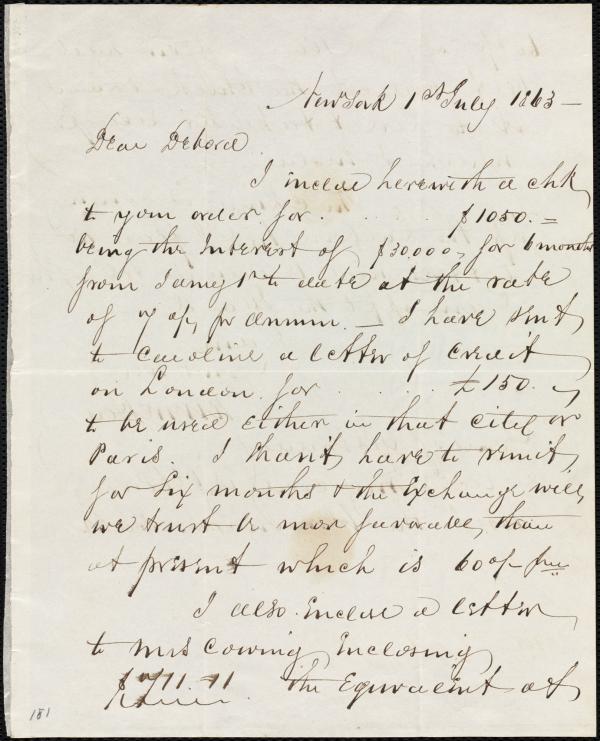 New York 1st July 1863 —
Dear Debora
I inclose herewith a chk
to your order for . . . . $1050. =
being the Interest of $30,000, for 6 months
from Jany 1st to date at the rate
of 7 o/o pr annum. — I have sent
to Caroline a letter of credit
on London for . . . . £150. —
to be used either in that city or
Paris. I shan't have to remit
for Six months & the Exchange will
we trust be more favorable, than
at present which is 60 o/o pm
I also Enclose a letter
to Mrs Cowing Enclosing
the Equivalent of
181